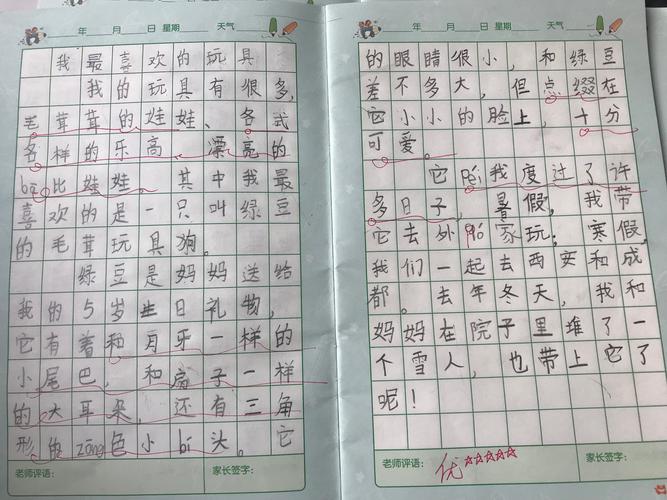 年 月 日 星期 天气
我最喜欢的玩具
我的玩具有很多,
毛茸茸的娃娃、各式
各样的乐高、漂亮的
bā比娃娃。其中我最
喜欢的是一只叫绿豆
的毛茸玩具狗。
绿豆是妈妈送给
我的5岁生日礼物,
它有着和月牙一样的
小尾巴,和扇子一样
的大耳朵,还有三角
形的zōng色小bí头。它
老师评语: 家长签字:
年 月 日 星期 天气
的眼睛很小,和绿豆
差不多大,但点缀在
它小小的脸上,十分
可爱。
它péi我度过了许
多日子,暑假,我带
它去外pó家玩;寒假,
我们一起去西安和成
都。去年冬天,我和
妈妈在院子里堆了一
个雪人,也带上它了
呢!
老师评语: 优☆☆☆☆☆ 家长签字: